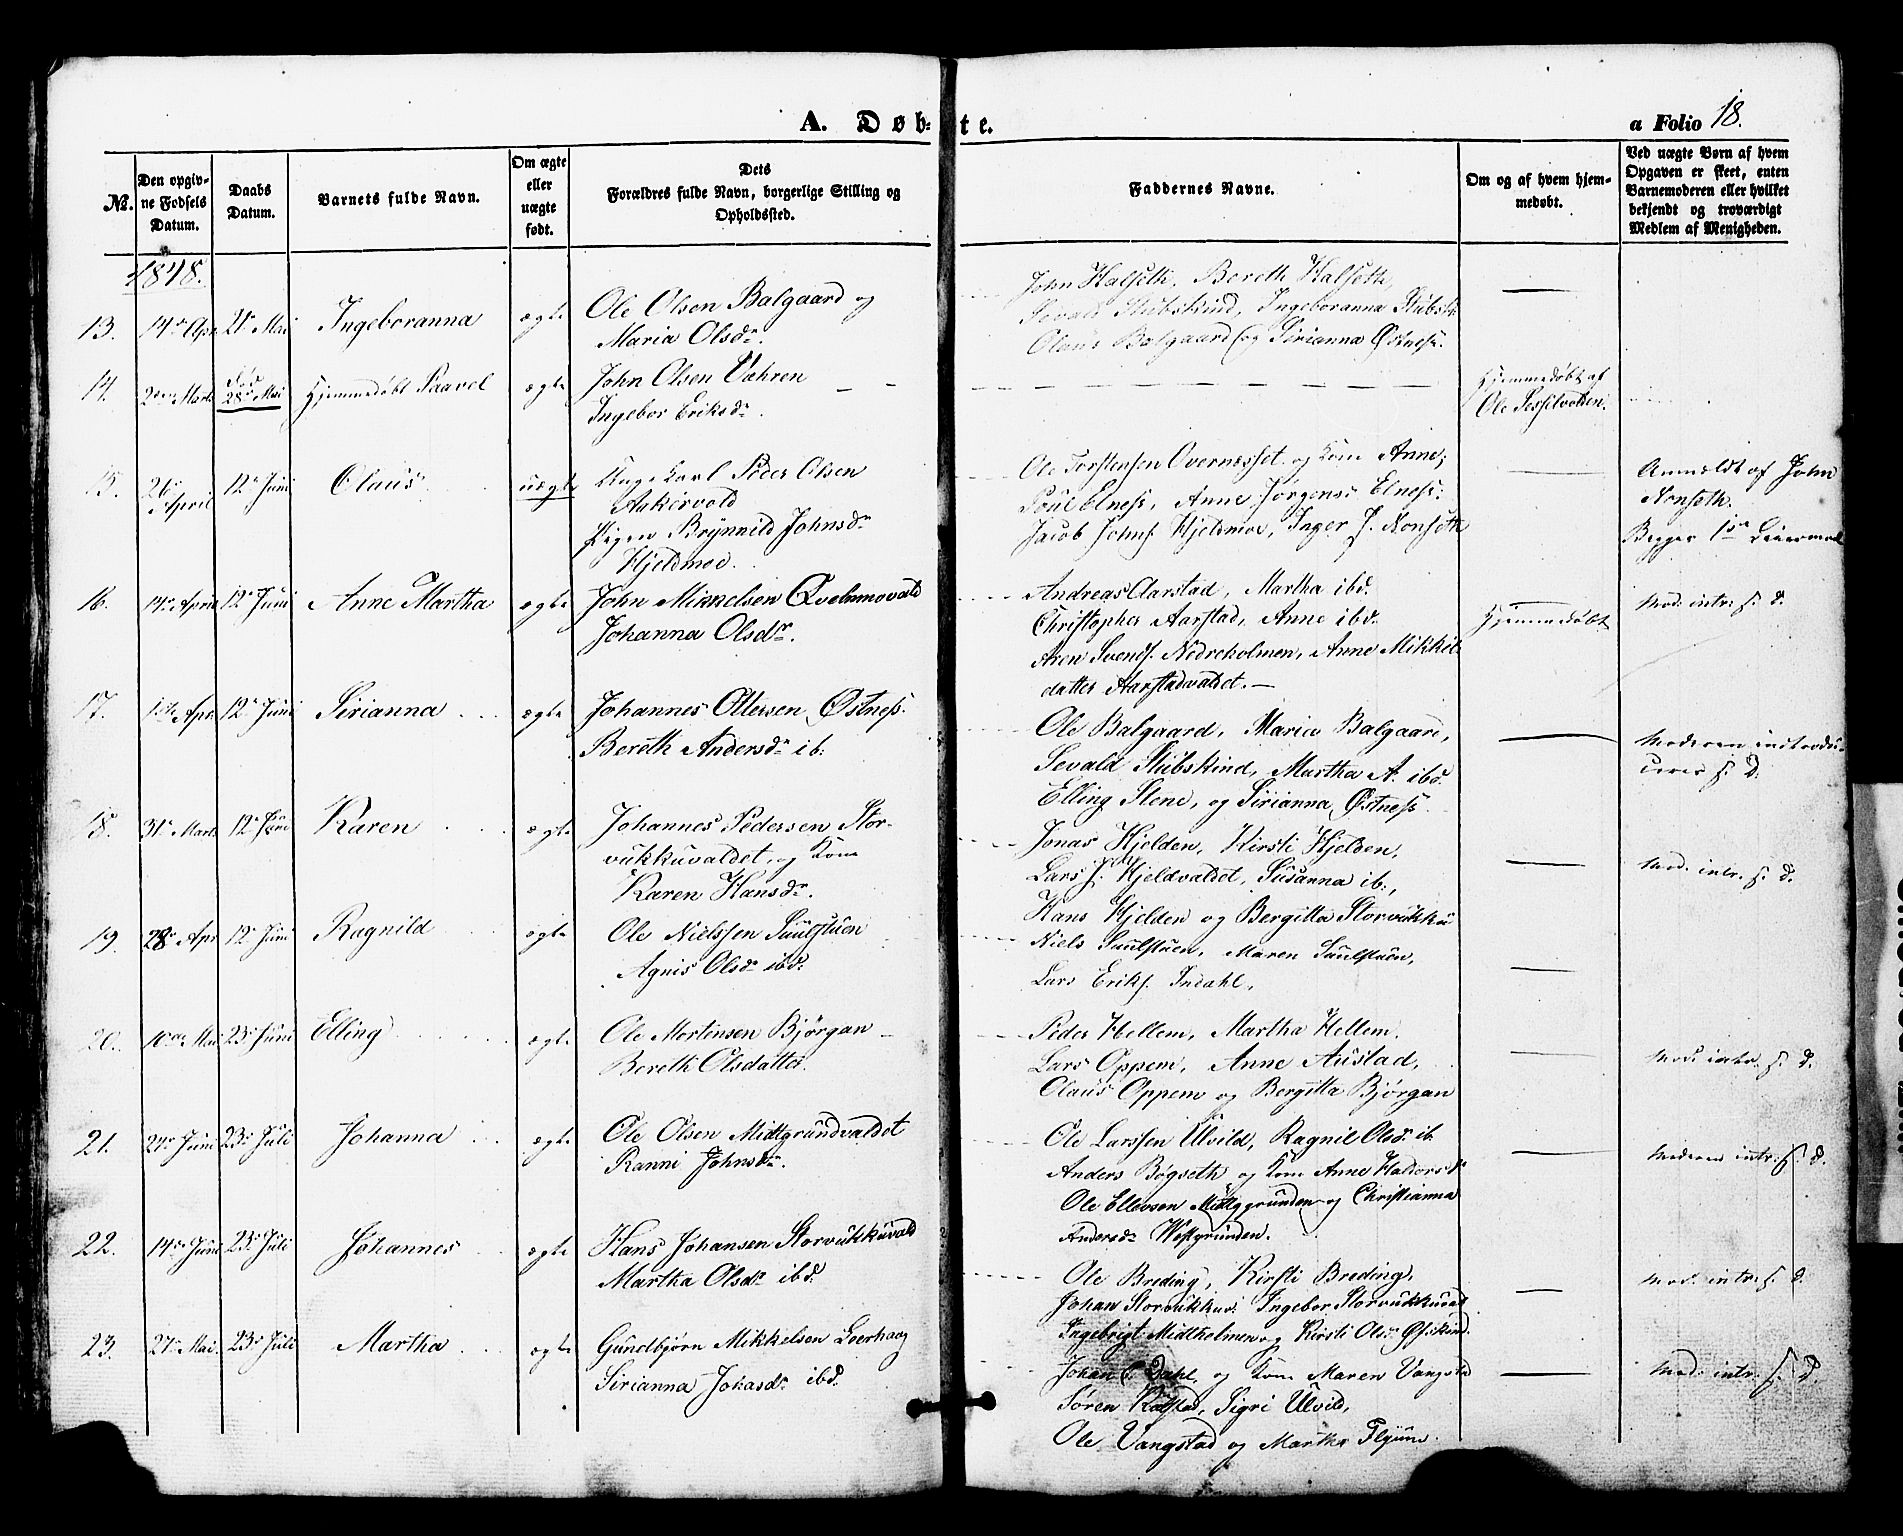 A. Døb=te.
a Folio 18.
No.
Den opgiv-
ne Fødsels
Datum.
Daabs
Datum.
Barnets fulde Navn.
Om ægte
eller
uægte
født.
Dets
Forældres fulde Navn, borgerlige Stilling og
Opholdssted.
Faddernes Navne.
Om og af hvem hjem-
medøbt.
Ved uægte Børn af hvem
Opgaven er skeet, enten
Barnemoderen eller hvilket
bekjendt og troværdigt
Medlem af Menigheden.
1848.
13. 14de Apr. 21de Mai Ingeboranna ægte Ole Olsen Balgaard og
Maria Olsdr.
John Halseth, Bereth Halseth,
Sevald Stubskind, Ingeboranna Stubsk.
Olaus Balgaard og Sirianna Østness.
14. Marts Død
28de Mai Hjemmedøbt Paavel ægte John Olsen Vahren
Ingebor Eriksdr.
Hjemmedøbt af
Ole Sesselvolden.
15. 26de
April 12te Juni Olaus uægte Unge Karl Peder Olsen
Askervold
Pigen Brynnild Johnsdr
Hjeldmoe.
Ole Torstensen Overnesset og Kone Anne,
Poul Elness, Anne Jørgensd Elness,
Jacob Johns. Hjeldmoe, Inger J. Nonseth
Anmeldt af John
Nonseth.
Begges 1ste Leiermaal
16. 14de April 12te Juni Anne Martha ægte John Mikkelsen Qvelmovald
Johanna Olsdr.
Andreas Aarstad, Martha ibd.
Christopher Aarstad, Anne ibd.
Aren Svends. Nedreholmen, Anne Mikkels
datter Aarstadvaldet.
Hjemmedøbt
Mod. intr. s. D.
17. Apr. 12te Juni Sirianna ægte Johannes Ottersen Østness.
Bereth Andersdr ib.
Ole Balgaard, Maria Balgaard,
Sevald Stubskind, Martha A. ibd.
Elling Stene, og Sirianna Østness
Moderen introdu-
ceres s. D.
18. 31te Marts 12te Juni Karen ægte Johannes Pedersen Stor-
vukkuvaldet, og Kone
Karen Hansdr.
Jonas Hjelden, Kirsti Hjelden,
Lars J. Hjeldvaldet, Susanna ib.,
Hans Hjelden og Bergitta Storvukku
Mod. intr. s. D.
19. 28de Apr. 12te Juni Ragnild ægte Ole Nielssen Suulstuen
Agnis Olsdr ibd.
Niels Suulstuen, Maren Suulstuen,
Lars Eriks. Indahl,
20. 10de Mai 23de Juni Elling ægte Ole Mortensen Bjørgan
Bereth Olsdatter.
Peder Hellem, Martha Hellem
Lars Oppem, Anne Austad,
Olaus Oppem og Bergitta Bjørgan
Mod. intr. s. D.
21. Juni 23de Juli Johanna ægte Ole Olsen Midtgrundvaldet
Ranni Johnsdr.
Ole Larssen Ulvild, Ragnil Olsdr ib.
Anders Bøgseth og Kone Anne Haldorsdr
Ole Ellevsen Midtgrunden og Christianna
Andersdr Westgrunden.
Moderen intr. s. D.
22. 14de Juni 23de Juli Johannes ægte Hans Johansen Storvukkuvald
Martha Olsdr ibd.
Ole Breding, Kirsti Breding,
Johan Storvukkuv. Ingebor Storvukkuvald
Ingebrigt Midtholmen og Kirsti Olsdr
Mod. intr. s. D.
23. 27de Mai 23de Juli Martha ægte Gundbjørn Mikkelsen Leerhaag
Sirianna Johasdr ibd.
Johan Dahl, og Kone Maren Vangstad
Søren Rolstad, Sigri Ulvild,
Ole Vangstad og Martha Flyum.
Mod. intr. s. D.